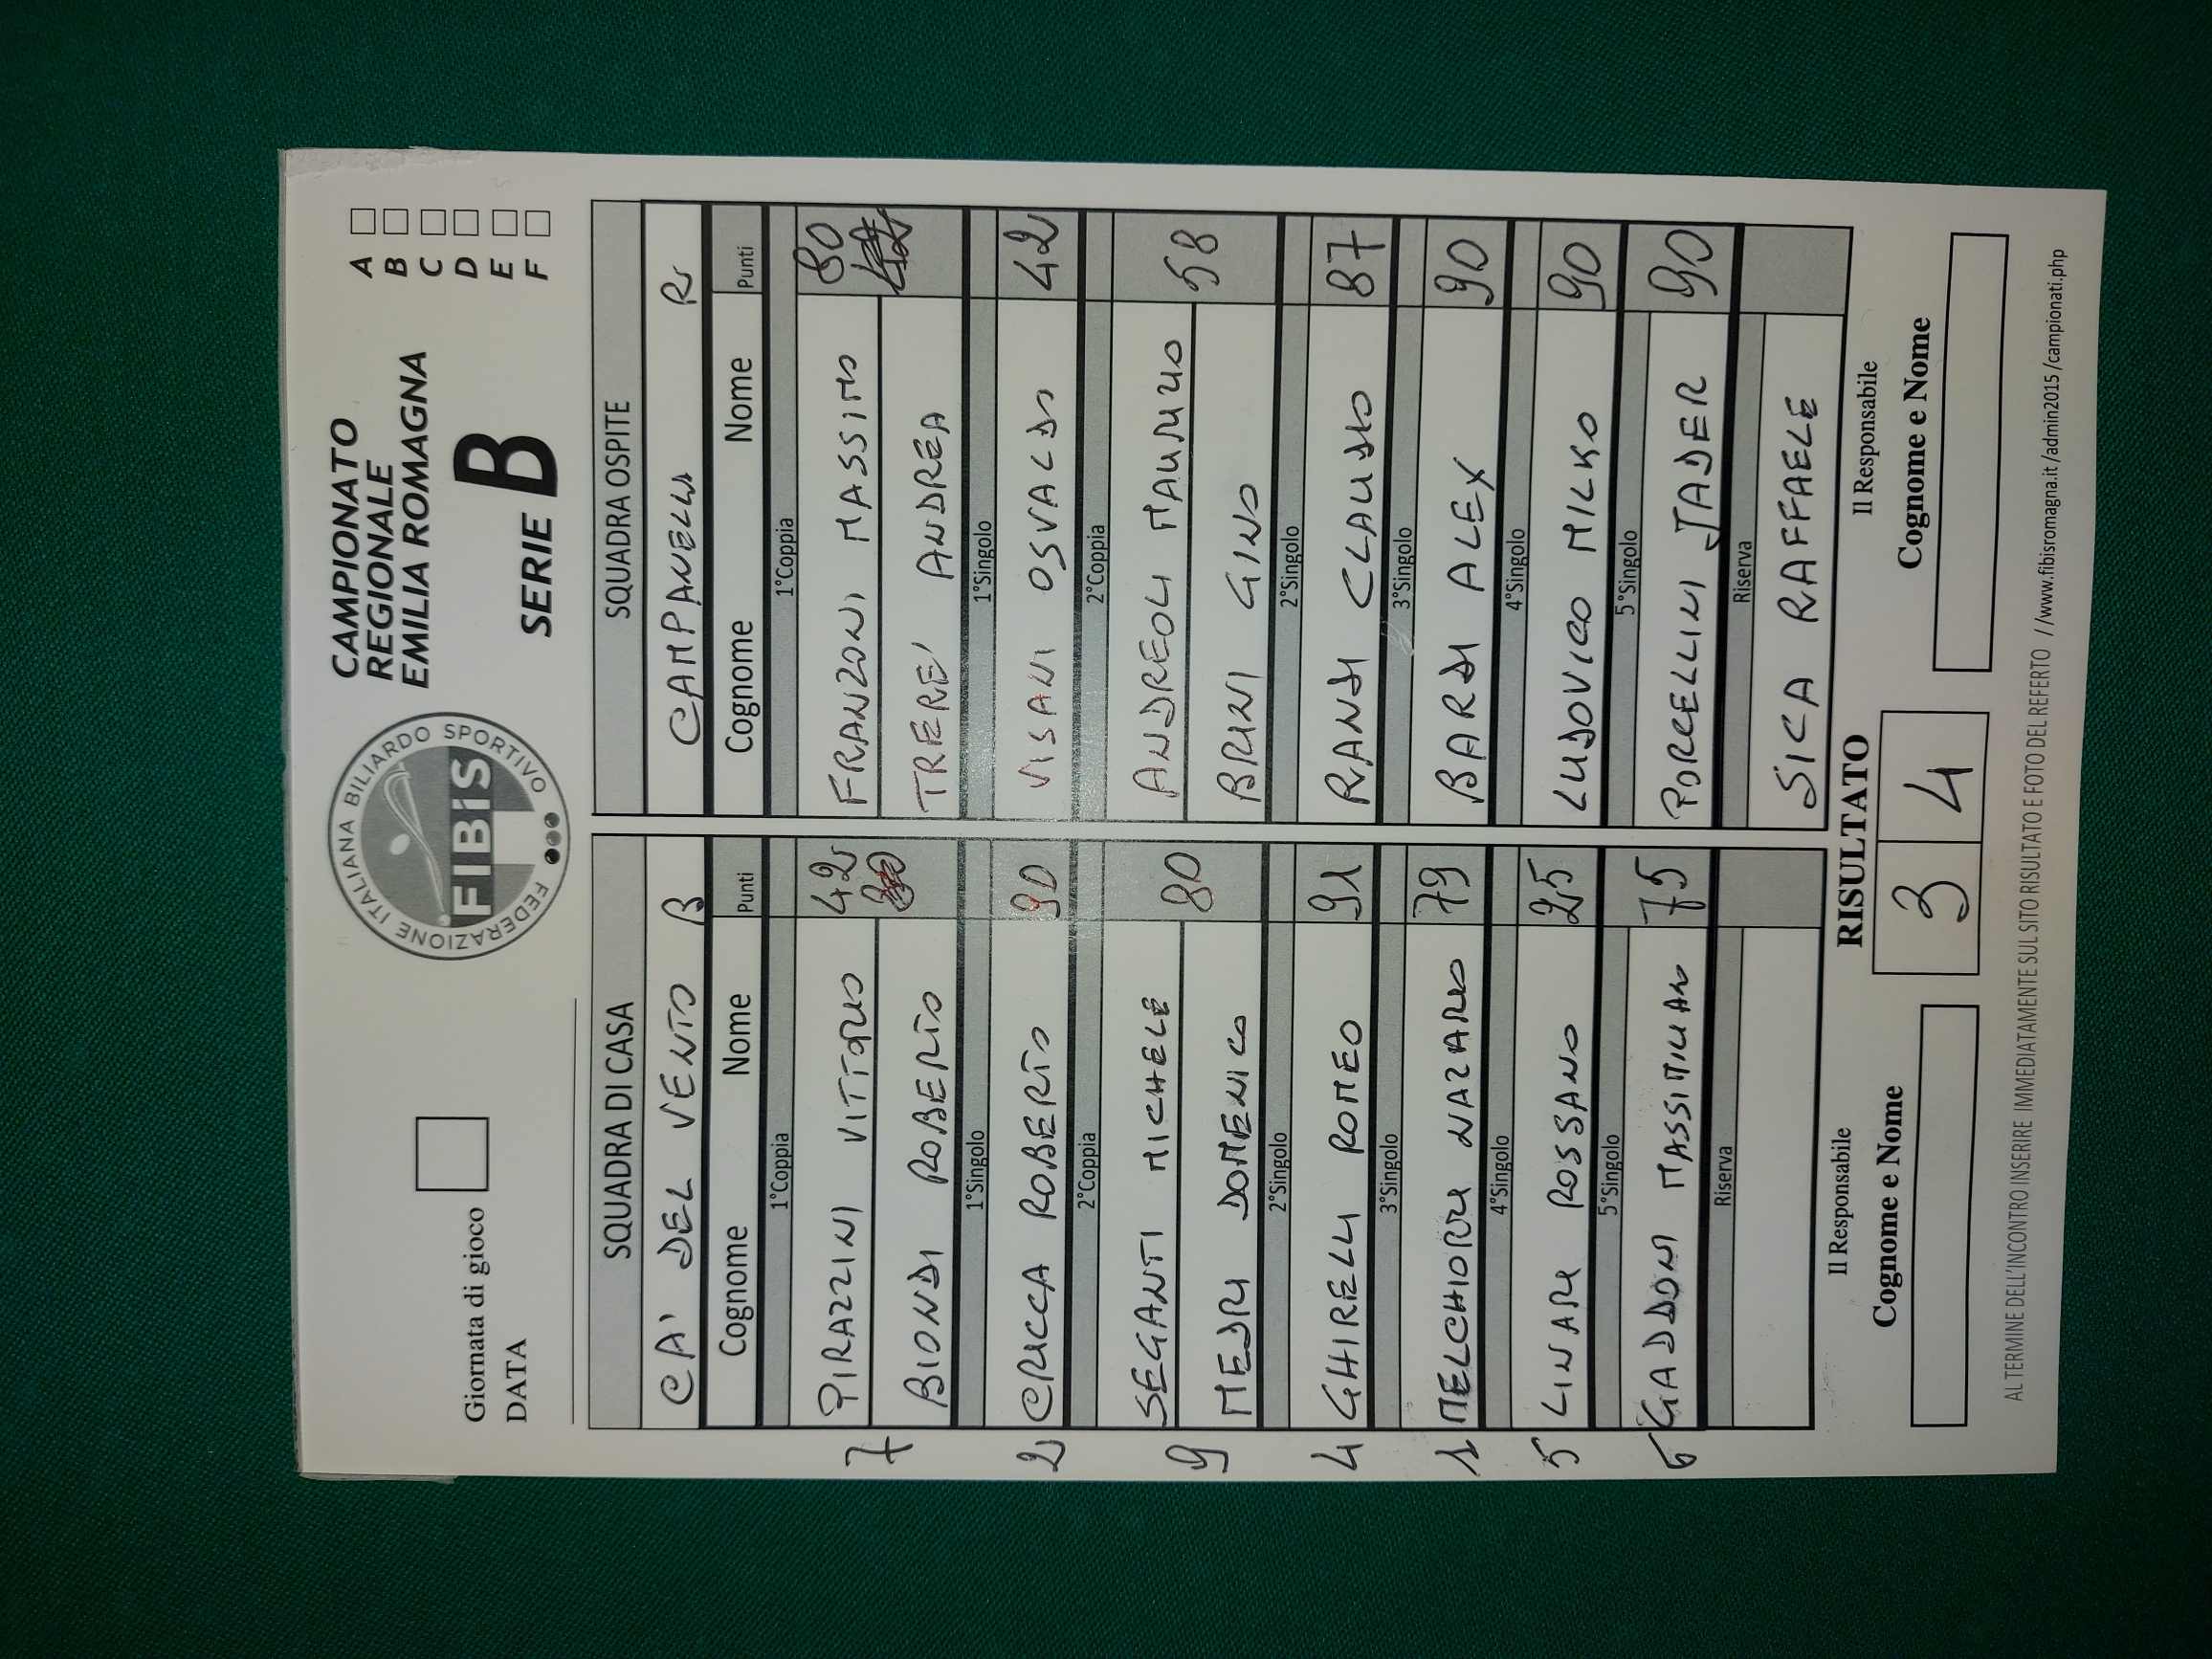 Giornata di gioco
DATA
FEDERAZIONE ITALIANA BILIARDO SPORTIVO
FIBiS
CAMPIONATO
REGIONALE
EMILIA ROMAGNA
SERIE B
A
B
C
D
E
F
SQUADRA DI CASA
CA' DEL VENTO B
Cognome Nome Punti
1°Coppia
7 PIRAZZINI VITTORIO 42
BIONDI ROBERTO
1°Singolo
2 CRICCA ROBERTO 90
2°Coppia
9 SEGANTI MICHELE 80
MEDRI DOMENICO
2°Singolo
4 GHIRELLI ROMEO 91
3°Singolo
1 MELCHIORRI NAZARIO 79
4°Singolo
5 LINARI ROSSANO 25
5°Singolo
6 GADDONI MASSIMILIANO 75
Riserva
SQUADRA OSPITE
CAMPANELLA R
Cognome Nome Punti
1°Coppia
FRANZONI MASSIMO 80
TRERE' ANDREA
1°Singolo
VISANI OSVALDO 42
2°Coppia
ANDREOLI MAURIZIO 58
BRINI GINO
2°Singolo
RANDI CLAUDIO 87
3°Singolo
BARDI ALEX 90
4°Singolo
LUDOVICO MILKO 90
5°Singolo
PORCELLINI JADER 90
Riserva
SICA RAFFAELE
Il Responsabile
Cognome e Nome
RISULTATO
3 4
Il Responsabile
Cognome e Nome
AL TERMINE DELL'INCONTRO INSERIRE IMMEDIATAMENTE SUL SITO RISULTATO E FOTO DEL REFERTO //www.fibisromagna.it/admin2015/campionati.php